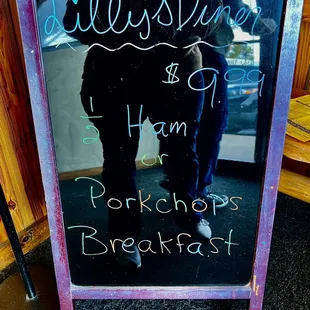 Lilly's Diner
$9.99
1/2 Ham
or
Porkchops
Breakfast